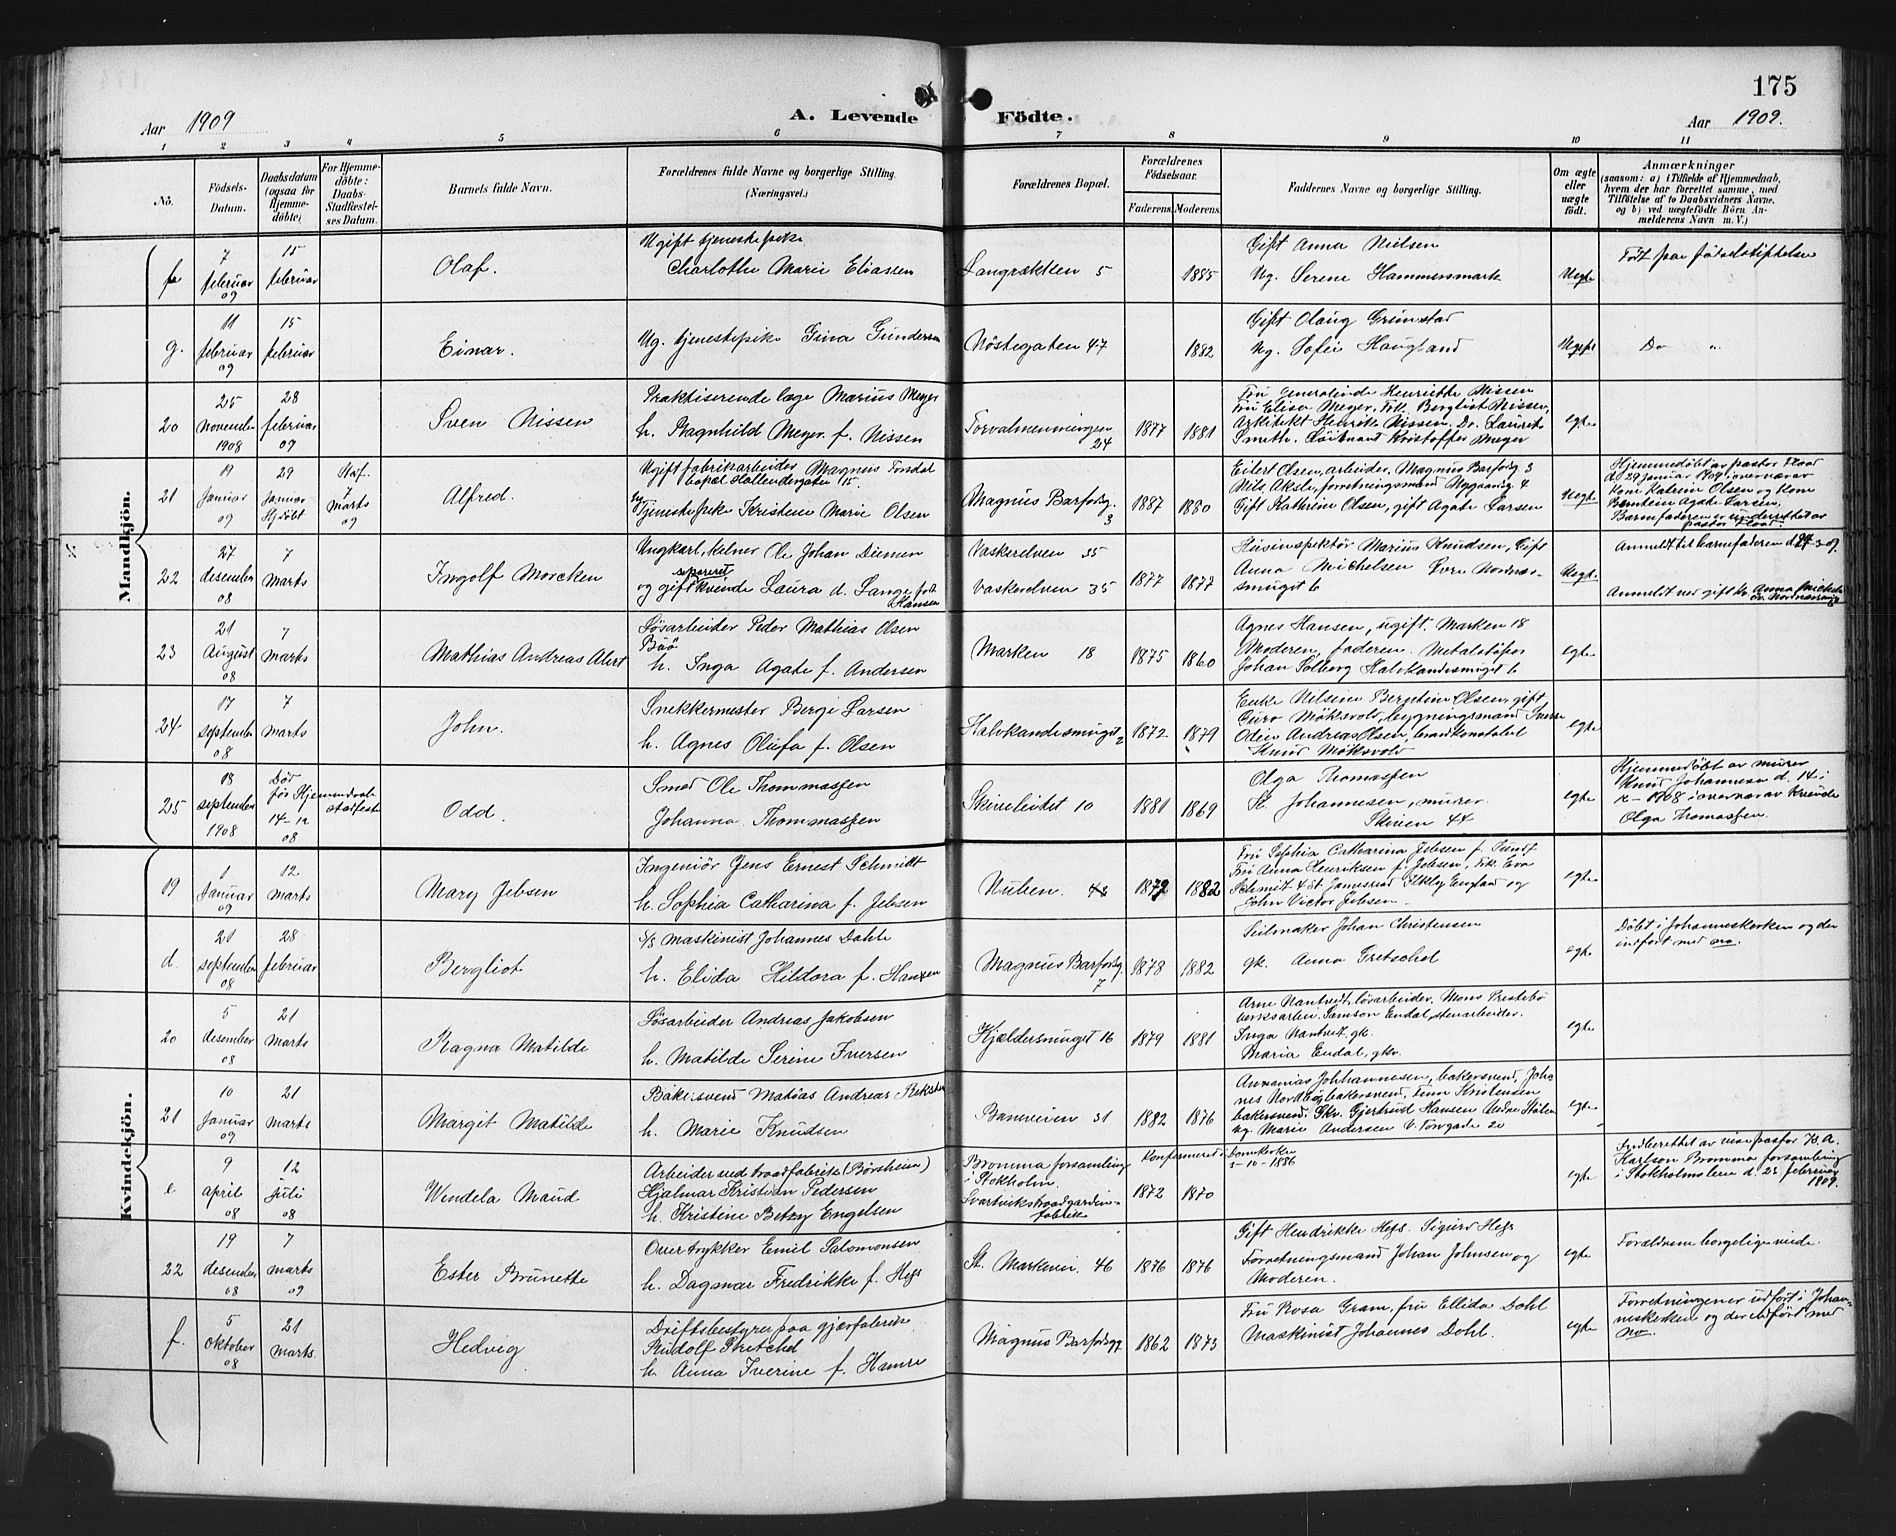 175
Aar 1909
A. Levende
Födte.
Aar 1909.
1 2 3 4 5 6 7 8 9 10 11
No.
Födsels-
Datum.
Daabsdatum
(ogsaa for
Hjemme-
döbte)
For Hjemme-
döbte:
Daabs-
Stadfæstel-
ses Datum.
Barnets fulde Navn.
Forældrenes fulde Navne og borgerlige Stilling.
(Næringsvei.)
Forældrenes Bopæl.
Forældrenes
Födselsaar.
Faderens. Moderens.
Faddernes Navne og borgerlige Stilling.
Om ægte
eller
uægte
födt.
Anmærkninger
(saasom: a) i Tilfælde af Hjemmedaab,
hvem der har forrettet samme, med
Tilföielse af to Daabsvidners Navne,
og b) ved uægtefödte Börn An-
melderens Navn m. V.)
Mandkjön.
7
februar
09
15
februar
Olaf.
Ugift tjenestepike
Charlotte Marie Eliassen
5
1885
Gift Anna Nielsen
Ug. Serene Hammersmark
Uegte
Født paa fødselstiftelsen
g.
11
februar
09
15
februar
Einar.
Ug. tjenestepike Gina Gundersen
Nøstegaten 47
1882
Gift Olaug Grimstad
Ug. Sofie Haugland
Do "
20
25
November
1908
28
februar
09
Sven Nissen
Praktiserende læge Marius Meyer
h. Ragnhild Meyer f. Nissen
Torvalmenningen
24
1877
1881
Fru Generalinde Henriette Nissen
Fru Elisa Meyer, Frk. Bergliot Nissen,
Arkitekt Henrik Nissen. Dr. Laurits
Smith. Løitnant Kristoffer Meyer
egte
21
19
Januar
09
29
Januar
Hjdøbt
Staf.
7
Marts
09
Alfred.
Ugift fabrikarbeider Magnus
bopæl Hollendergaten 15.
Tjenestepike Kristine Marie Olsen
Magnus Barfodsg.
3
1887
1880
Eilert Olsen, arbeider, Magnus Barfodsg 3
Nils Aksle, forretningsmand Nygaardsg 4
Gift Kathrine Olsen, gift Agate Larsen
Uegte
Hjemmedøbt av pastor Floor
d 29 januar 1909 i overvær av
Kone Katrine Olsen og kone
Agate Larsen
Barnefaderen er underrettet av
pastor Floor.
22
27
desember
08
7
Marts
Ingolf Morcken
Ungkarl, Kelner Ole Johan Diemen
separeret
og gift kvinde Laura d. Lange født
Hansen
Vaskerelven 35
Vaskerelven 35
1877
1877
Husinspektør Marius Knudsen, Gift
Anna Michelsen Øvre Nordnæs-
smuget 6
Uegte
Anmeldt til barnefaderen d 24-3-09.
Anmeldt ved gift kv. Anna Michels.
23
21
August
08
7
Marts
Mathias Andreas Alert
Løsarbeider Peder Mathias Olsen
Bøø
h. Inga Agate f. Andersen
Marken 18
1875
1860
Agnes Hansen, ugift. Marken 18
Moderen, faderen. Metalstøper
Johan Solberg Halvkandesmuget 6
egte
24
17
september
08
7
Marts
John.
Snekkermester Berge Larsen
h. Agnes Olufa f. Olsen
Halvkandesmuget 2
1872
1879
Enke Nilsine Bergitine Olsen, gift
Guro Møksvold, bygningsmand Sverre
Odin Andreas Olsen, brandkonstabel
Knud Møksvold
egte
25
18
september
1908
Død
før Hjemmedaab
stadfest
14-12
08
Odd.
Smed Ole Thommassen
Johanna Thommassen
Skivebeidet 10
1881
1869
Olga Thomassen
K. Johannesen, murer.
Skiven 44
egte
Hjemmedøbt av murer
Knud Johannesen d. 14 i
12-1908 i overvær av Kvinde
Olga Thomassen.
Kvindekjön.
19
1
Januar
09
12
Marts
Mary Jebsen
Ingeniør Jens Ernest Schmidt
h. Sophia Catharina f. Jebsen
Nuben. 43
1872
1882
Fru Sophia Catharina Jebsen f. Sundt
Fru Anna Henriksen f. Jebsen, Frk. Eva
Schmit 4 St. Jamesroad Ilkley England og
John Victor Jebsen.
egte
d.
21
september
08
28
februar
Bergliot
S/S Maskinist Johannes Dahle
h. Elida Hildora f. Hansen
Magnus Barfodsg.
7
1878
1882
Seilmaker Johan Christensen
gk. Anna Gretschel
egte
Døbt i Johanneskerken og der
indført med no.
20
5
desember
08
21
Marts
Ragna Matilde
Løsarbeider Andreas Jakobsen
h. Matilde Serine Iversen
Kjældersmuget 16
1879
1881
Arne Nantvedt, løsarbeider, Mons Prestebø
verksarbei. Samson Endal, stenarbeider.
Inga Nantvet gk.
Maria Endal, gkv.
egte
21
10
Januar
09
21
Marts
Margit Matilde
Bakersvend Matias Andreas Rekste
h. Marie Knudsen
Baneveien 31
1882
1876
Annanias Johhannesen, bakersvend, Joha
nes Nordbø bakersvend, Finn Kristensen
bakersvend. Gkv. Gjertrud Hansen Nedre Stølen
ug. Marie Andersen V. Torvgade 20
egte
e
9
april
08
12
juli
08
Wendela Maud
Arbeider ved traadfabrik (Børsheim)
Hjalmar Kristian Pedersen
h. Kristine Betzy Engelsen
Bromma forsamling
i Stokholm.
Svartviks traadgardin-
fabrik
Konfirmered i Domkerken
3-10-1886
1872
1870
egte
Indberettet av vicepastor K. A.
Karlson Bromma forsamling
i Stokholms læn d. 23 februar
1909.
22
19
desember
08
7
marts
09
Ester Brunette
Overtrykker Emil Salomonsen
h. Dagmar Fredrikke f. Hess
St. Markevei. 46
1876
1876
Gift Hendrikke Hess. Sigurd Hess
Forretningsmand Johan Johnsen og
Moderen.
egte
Forældrene borgelig viede.
f.
5
Oktober
08
21
Marts.
Hedvig
Driftsbestyrer paa gjærfabrikk
Rudolf Gretchel
h. Anna Iverine f. Hamre
Magnus Barfodsg 7
1862
1873
Fru Rosa Gram, fru Ellida Dohl
Maskinist Johannes Dohl.
egte
Forretningener utført i Johan-
neskerken og der indført med
no.